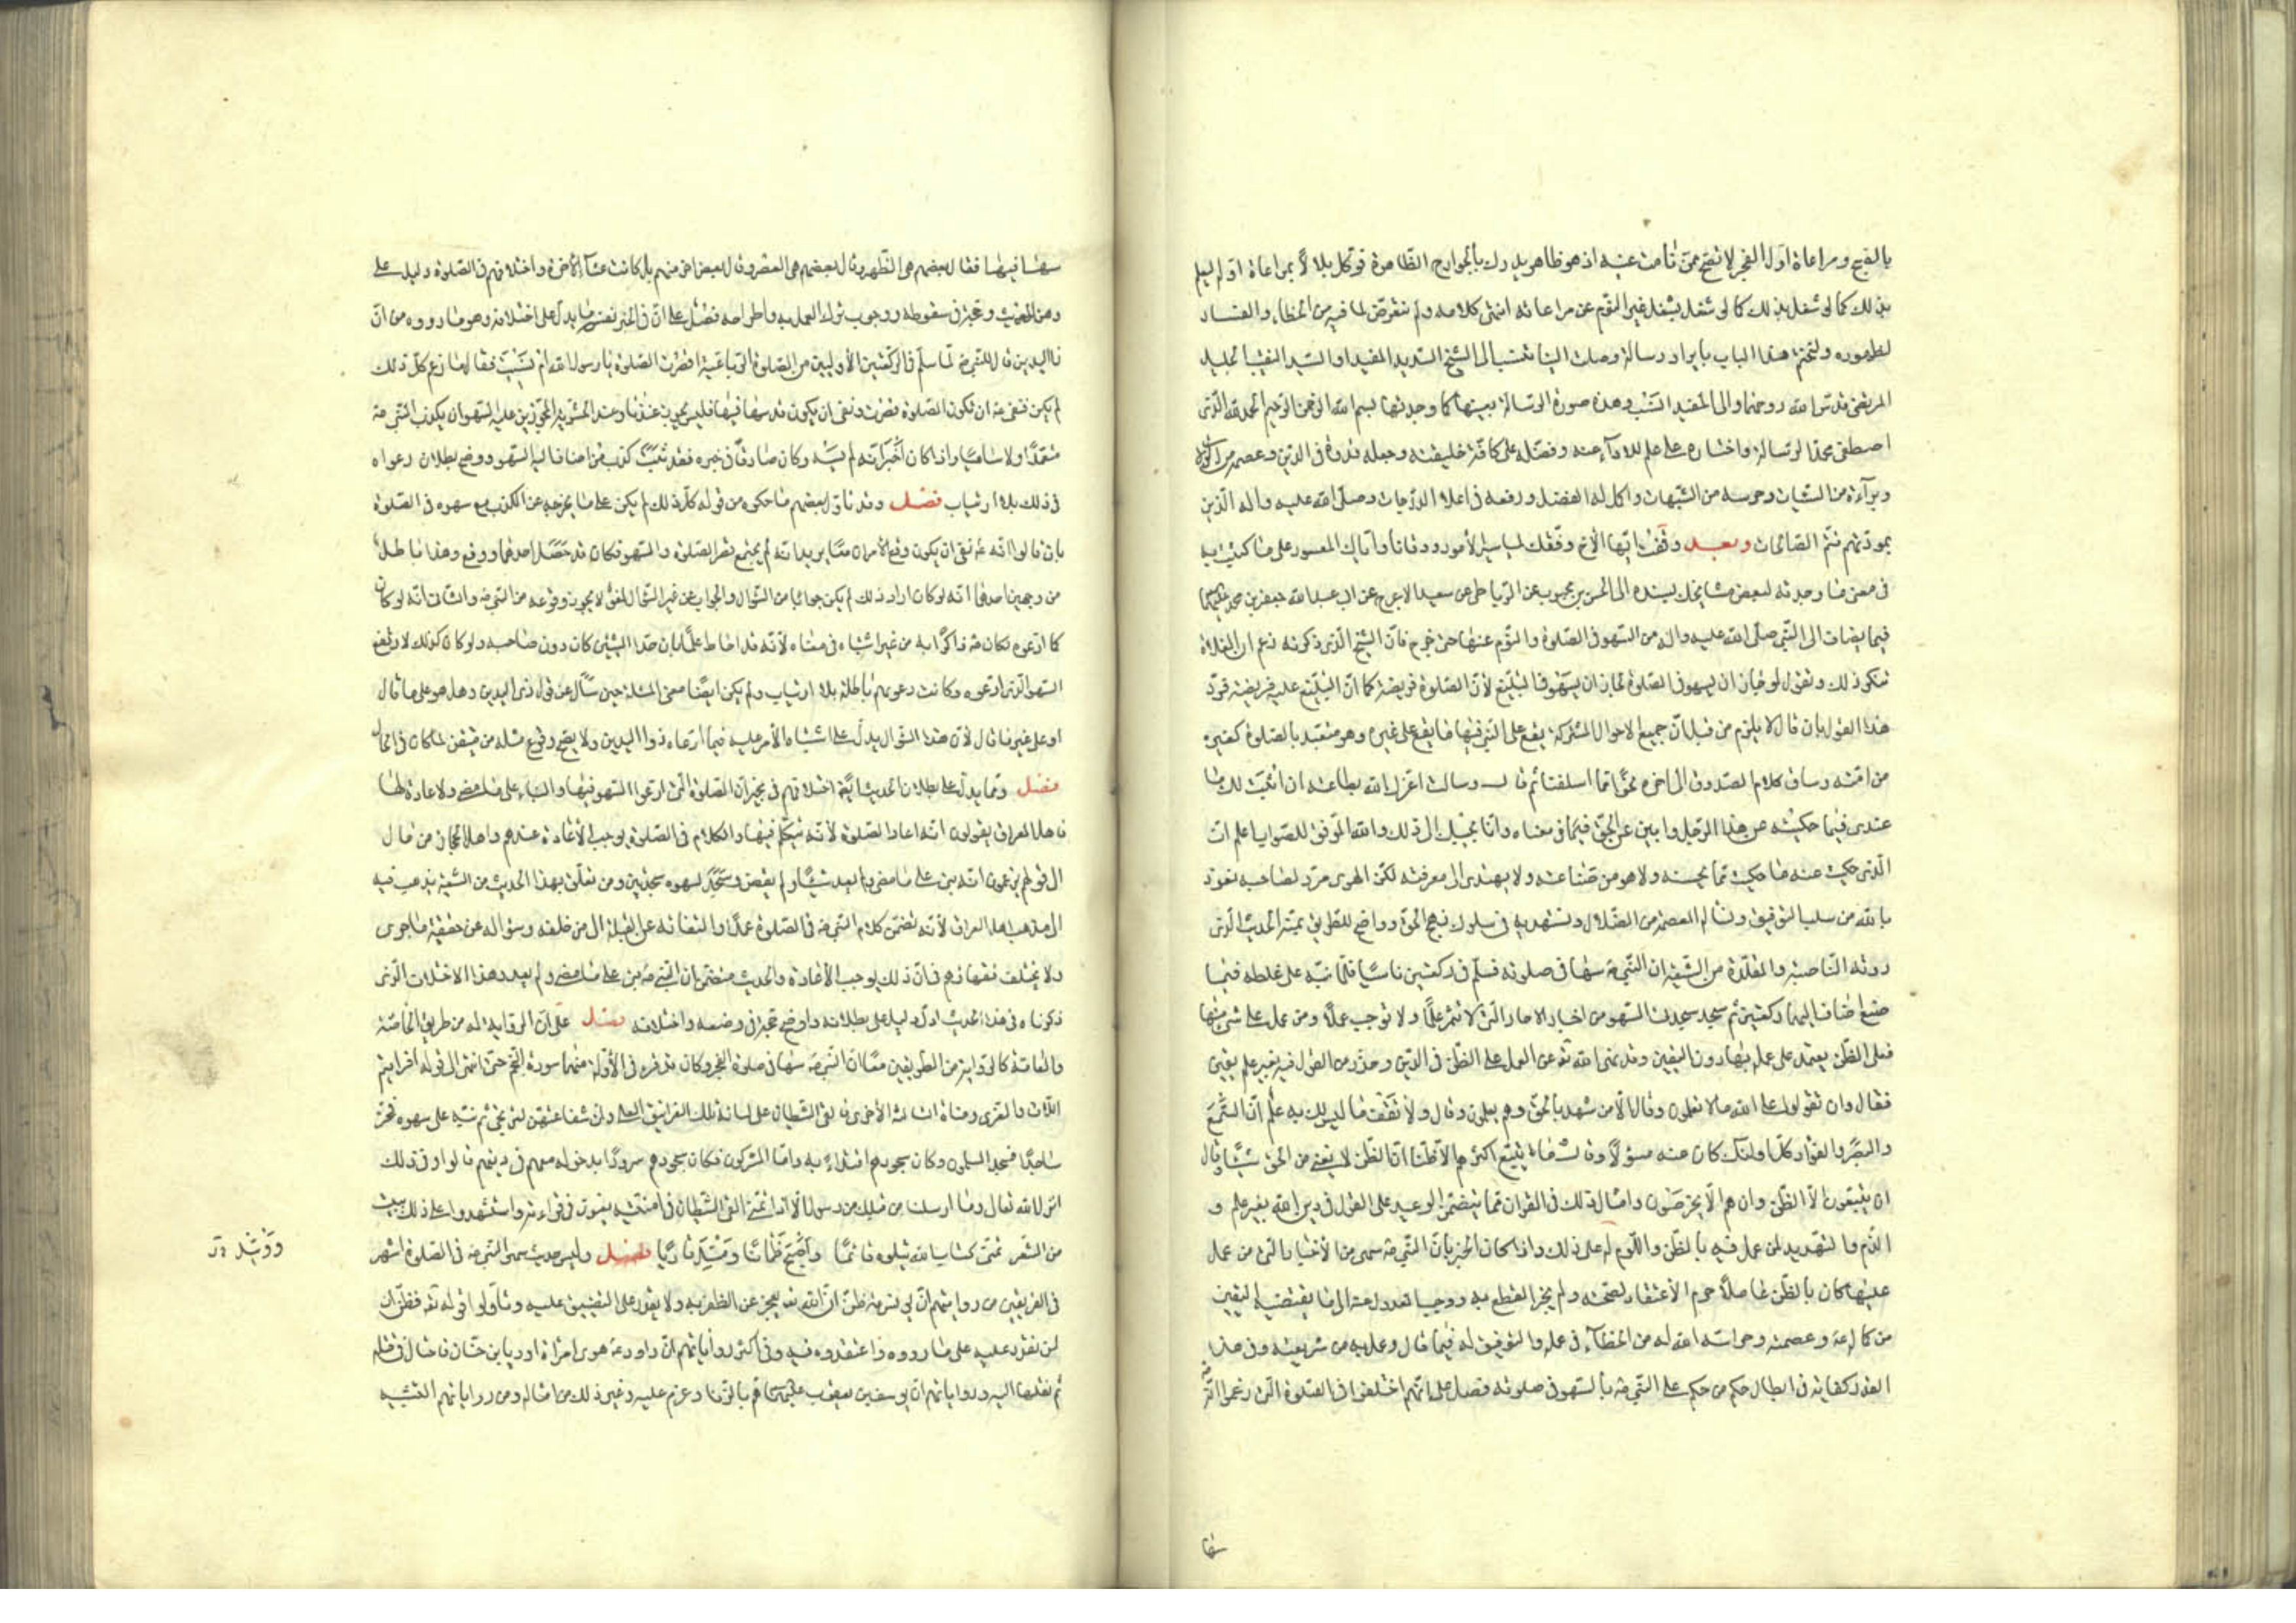 بالفجر ومراعاة اوّل الفجر لا تصحّ ممّن نامت عينه اذ هو ظاهر يدرك بالجوارح الظاهرة فوكل بلالاً بمراعاة اوّله ليعلم
بذلك كما لو شغل بذلك كما لو شغل يشغل غير النوم عن مراعاته انتهى كلامه ولم نتعرّض لما فيه من الخطاء والفساد
لظهوره ولنختم هذا الباب بايراد رسالة وصلت الينا تنسب الى الشيخ السديد المفيد او السيّد النقيب الجليل
المرتضى قدّس الله روحهما والى المفيد انسب وهذه صورة الرسالة بعينها كما وجدتها بسم الله الرحمن الرحيم الحمد لله الّذي
اصطفى محمّدا لرسالته واختاره على علم للاداء عنه وفضّله على كافّة خليقته وجعله قدوة في الدين وعصمه من الزلّات
وبرّاءه من السيّات وحرسه من الشبهات واكمل له الفضل ورفعه في اعلا الدرجات وصلّى الله عليه واله الّذين
بمودّتهم تتمّ الصالحات وبعد وقفت ايّها الاخ وفّقك الله لمياسير الامور ووقانا وايّاك المعسور على ما كتبت به
في معنى ما وجدته لبعض مشايخك بسنده الى الحسن بن محبوب عن الرباطي عن سعيد الاعرج عن ابي عبد الله جعفر بن محمّد عليهما السلام
فيما يضاف الى النبيّ صلّى الله عليه واله من السهو في الصلوة والنوم عنها حتى خرج فانّ الشيخ الّذي ذكرته زعم ان الغلاة
تنكر ذلك وتقول لو جاز ان يسهو في الصلوة لجاز ان يسهو في التبليغ لأنّ الصلوة فريضة كما انّ التبليغ عليه فريضة فردّ
هذا القول بان قال لا يلزم من قبل انّ جميع الاحوال المشتركة يقع على النبيّ فيها ما يقع على غيره وهو متعبّد بالصلوة كغيره
من امّته وساق كلام الصدوق الى اخره نحوًا ممّا اسلفنا ثم قال وسالت اعزّك الله بطاعته ان اثبت لك ما
عندي فيما حكيته عن هذا الرجل وابين عن الحقّ فيما في معناه وانا مجيبك الى ذلك والله الموفّق للصواب اعلم انّ
الّذي حكيت عنه ما حكيت ممّا يحسنه ولا هو من صناعته ولا يهتدى الى معرفته لكنّ الهوى مرد لصاحبه نعوذ
بالله من سلب التوفيق ونساله العصمة من الضلال ونستهديه في سلوك نهج الحقّ وواضح الطريق بمنّه الحديث الّذي
روته الناصبة والمقلّدة من الشيعة ان النبيّ ص سها في صلوته فسلّم في ركعتين ناسيًا فلمّا نبّه على غلطه فيما
صنع اضاف اليهما ركعتين ثم سجد سجدتي السهو من اخبار الاحاد الّتي لا تثمر علمًا ولا توجب عملًا ومن عمل على شيء منها
فعلى الظنّ يعتمد على عمله بها دون اليقين وقد نهى الله تع عن العمل على الظنّ في الدين وحذّر من القول فيه بغير علم يقين
فقال وان تقولوا على الله مالا تعلمون وقال الّا من شهد بالحقّ وهم يعلمون وقال ولا تقف ما ليس لك به علم انّ السّمع
والبصر والفؤاد كلّ اولئك كان عنه مسؤلًا وقال وما يتّبع اكثرهم الّا ظنّا انّ الظنّ لا يغني من الحقّ شيئًا وقال
ان يتّبعون الّا الظنّ وان هم الّا يخرصون وامثال ذلك في القران ممّا يتضمّن الوعيد على القول في دين الله بغير علم و
الذم والتهديد لمن عمل فيه بالظنّ واللوم له على ذلك واذا كان الخبر بانّ النبيّ ص سهى من الأخبار الّتي من عمل
عليها كان بالظنّ عاملاً حرم الأعتقاد بصحّته ولم يجز القطع به ووجب العدول عنه الى ما يقتضيه اليقين
من كماله ع وعصمته وحراسة الله له من الخطاء في عمله والتوفيق له فيما قال وعمل به من شريعته وفي هذا
القدر كفاية في ابطال حكم من حكم على النبيّ ص بالسهو في صلوته فصل على انّهم اختلفوا في الصلوة الّتي زعموا انّه
سها
سها فيها فقال بعضهم هي الظهر وقال بعضهم هي العصر وقال بعض اخر منهم بل كانت عشاء الأخرة واختلافهم في الصلوة دليل على
وهن الحديث وحجّة في سقوطه ووجوب ترك العمل به واطراحه فصل على انّ في الخبر نفسه ما يدلّ على اختلاقه وهو ما رووه من انّ
ذا اليدين قال للنبيّ ص لمّا سلّم في الركعتين الأوليين من الصلوة الرباعيّة اقصرت الصلوة يا رسول الله ام نسيت فقال ما زعم كلّ ذلك
لم يكن فنفى ع ان تكون الصلوة قصرت ونفى ان يكون قد سها فيها فليس يجوز عندنا وعند الحشوية المجوّزين عليه السهو ان يكون النبيّ ص
متعمّدًا ولا ساهيًا واذا كان اخبر انّه لم يسه وكان صادقًا في خبره فقد ثبت كذب من اضاف اليه السهو ووضح بطلان دعواه
في ذلك بلا ارتياب فصل وقد تاوّل بعضهم ما حكوه من قوله كلّ ذلك لم يكن على ما يخرجه عن الكذب مع سهوه في الصلوة
بان قالوا انّه ع نفى ان يكون وقع الأمران معًا يريد انّه لم يجتمع قصر الصلوة والسهو فكان قد حصل احدهما ووقع وهذا باطل
من وجهين احدهما انّه لو كان اراد ذلك لم يكن جوابًا من السؤال والجواب عن غير السؤال لغو لا يجوز وقوعه من النبيّ ص والثاني انّه لو كان
كما ادّعوه لكان ص ذاكرًا به من غير اشتباه في معناه لأنّه قد احاط علمًا بان احد الشيئين كان دون صاحبه ولو كان كذلك لارتفع
السهو الّذي ادّعوه وكانت دعويهم باطلة بلا ارتياب ولم يكن ايضًا معنى لمسئلته حين سأل عن قول ذي اليدين وهل هو على ما قال
او على غير ما قال لأن هذا السؤال يدلّ على اشتباه الأمر عليه فيما ادّعاه ذوا اليدين ولا يصحّ وقوع مثله من متيقّن لما كان في الحال
فصل وممّا يدلّ على بطلان الحديث ايضًا اختلافهم في جبران الصلوة الّتي ادّعوا السهو فيها والبناء على ما مضى ولاعادة لها
فاهل العراق يقولون انّه اعاد الصلوة لأنّه تكلّم فيها والكلام في الصلوة يوجب الأعادة عندهم واهل الحجاز ومن مال
الى قولهم يزعمون انّه بنى على ما مضى ولم يعد شيئًا ولم يقض وسجد لسهوه سجدتين ومن تعلّق بهذا الحديث من الشيعة يذهب فيه
الى مذهب اهل العراق لأنّه تضمّن كلام النبيّ ص في الصلوة عمدًا والتفاته عن القبلة الى من خلفه وسؤاله عن حقيقة ما جرى
ولا يختلف فقهاؤهم في انّ ذلك يوجب الأعادة والحديث متضمّن ان النبيّ ص بنى على ما مضى ولم يعد وهذا الاختلاف الّذي
ذكرناه في هذا الحديث ادلّ دليل على بطلانه واوضح حجّة في وضعه واختلاقه فصل على انّ الرواية له من طريق الخاصّة
والعامّة كالرواية من الطريقين معًا انّ النبيّ ص سها في صلوة الفجر وكان قد قرء في الأوّلة منهما سورة النجم حتّى انتهى الى قوله افرايتم
اللّات والعزّى ومناة الثالثة الأخرى فالقى الشيطان على لسانه تلك الغرانيق العلى وانّ شفاعتهنّ لترتجى ثم نبّه على سهوه فخرّ
ساجدًا فسجد المسلمون وكان سجودهم اقتداءً به وامّا المشركون فكان سجودهم سرورًا بدخوله معهم في دينهم قالوا وفي ذلك
انزل الله تعالى وما ارسلنا من قبلك من رسول الّا اذا تمنّى القى الشيطان في امنيّته يعنون في قراءته واستشهدوا على ذلك ببيت
من الشعر تمنّى كتاب الله يتلوه قائمًا واصبح ظمآنًا ومسّد قاريًا فصل وليس حديث سهو النبيّ ص في الصلوة اشهر
في الفريقين من روايتهم انّ يونس ع ظنّ انّ الله تعـ يعجز عن الظفر به ولا يقدر على التضييق عليه وتاوّلوا قوله تع فظنّ ان
لن نقدر عليه على ما رووه واعتقدوه فيه وفي اكثر رواياتهم انّ داود ع هوى امراة اوريا بن حنّان فاحتال في قتله
ثم نقلها اليه ورواياتهم انّ يوسف بن يعقوب عليهما السلام همّ بالزنا وعزم عليه وغير ذلك من امثاله ومن رواياتهم التشبيه